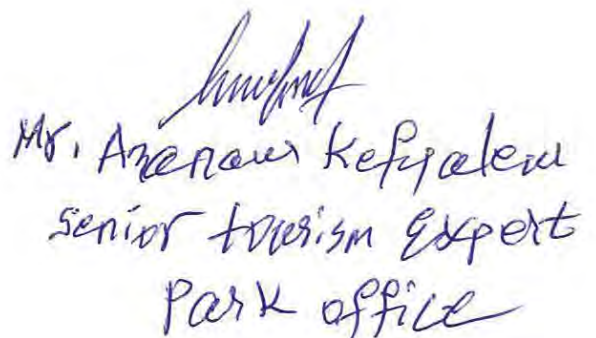 Mr. Azanaw Kefyalew
Senior tourism Expert
Park office